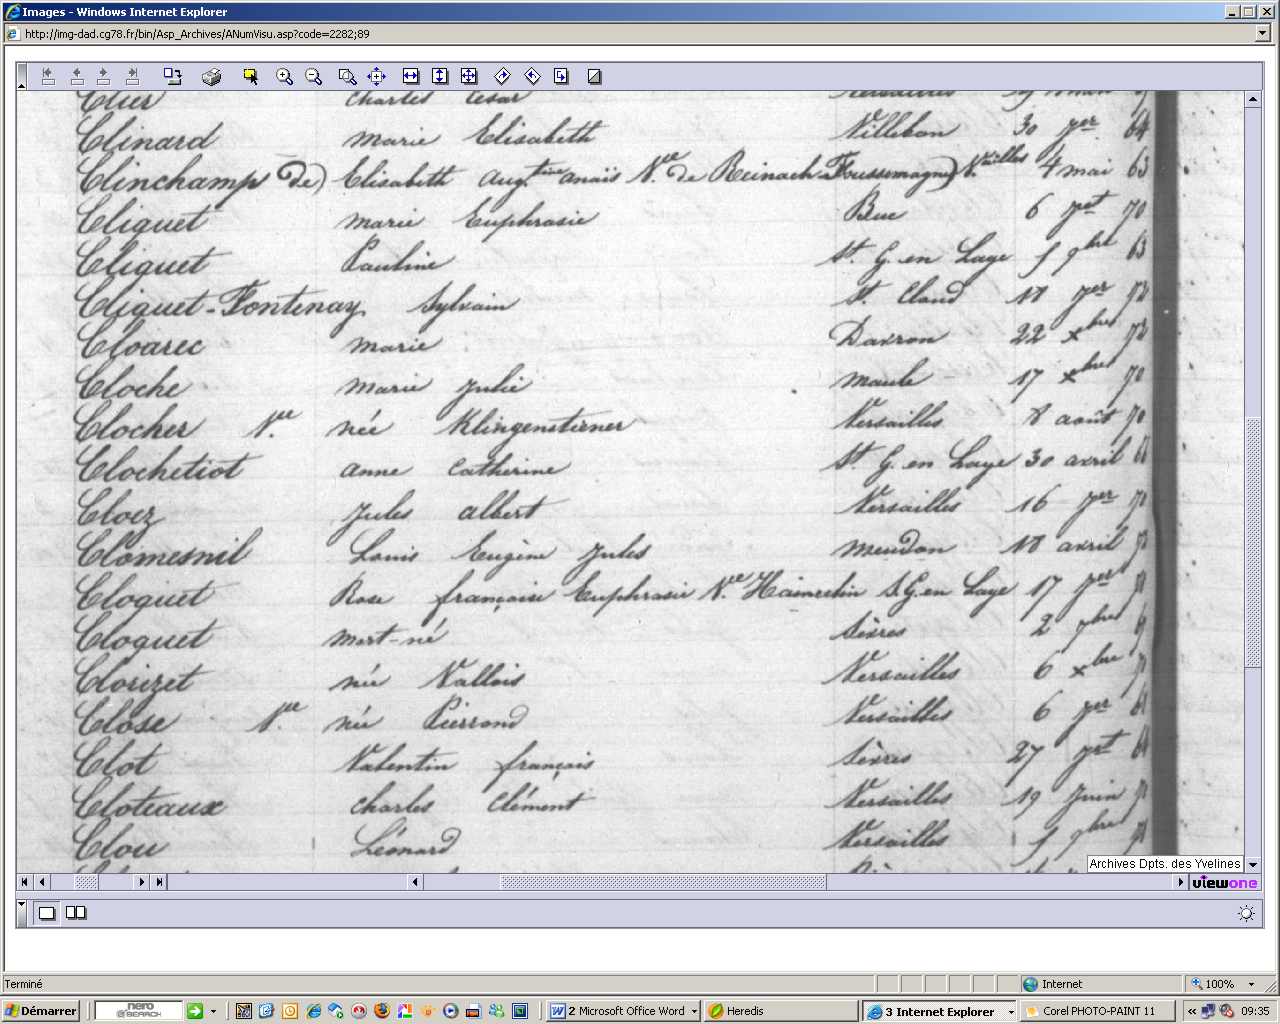 Images - Windows Internet Explorer
http://img-dad.cg78.fr/bin/Asp_Archives/ANumVisu.asp?code=2282;89
Clier Charles César Versailles
Clinard Marie Elisabeth Villebon 30 7er 64
Clinchamp (de) Elisabeth Aug.tine anaïs Vve de Reinach-Foussemagne V.ailles 4 mai 63
Cliquet Marie Euphrasie Buc 6 70
Cliquet Pauline St. G. en Laye 5 9bre 63
Cliquet-Fontenay Sylvain St. Cloud 18 7er 72
Cloarec Marie Davron 22 xbre 72
Cloche Marie Julie Maule 17 xbre 70
Clocher Vve née Klingenstierner Versailles 8 août 70
Clochetiot anne Catherine St. G. en Laye 30 avril
Cloez Jules albert Versailles 16 7er 70
Clomesnil Louis Eugène Jules Meudon 18 avril
Cloquet Rose françoise Euphrasie Vve S.G. en Laye 17 7er
Cloquet Mort-né Sèvres 2
Clorizet née Vallois Versailles 6 xbre
Close Vve née Pierrond Versailles 6 7er
Clot Valentin françois Sèvres 27
Cloteaux Charles Clément Versailles 19 Juin
Clou Léonard Versailles 5 9bre
Archives Dpts. des Yvelines
viewone
Terminé Internet 100%
Démarrer nero SEARCH 2 Microsoft Office Word Heredis 3 Internet Explorer Corel PHOTO-PAINT 11 « 09:35